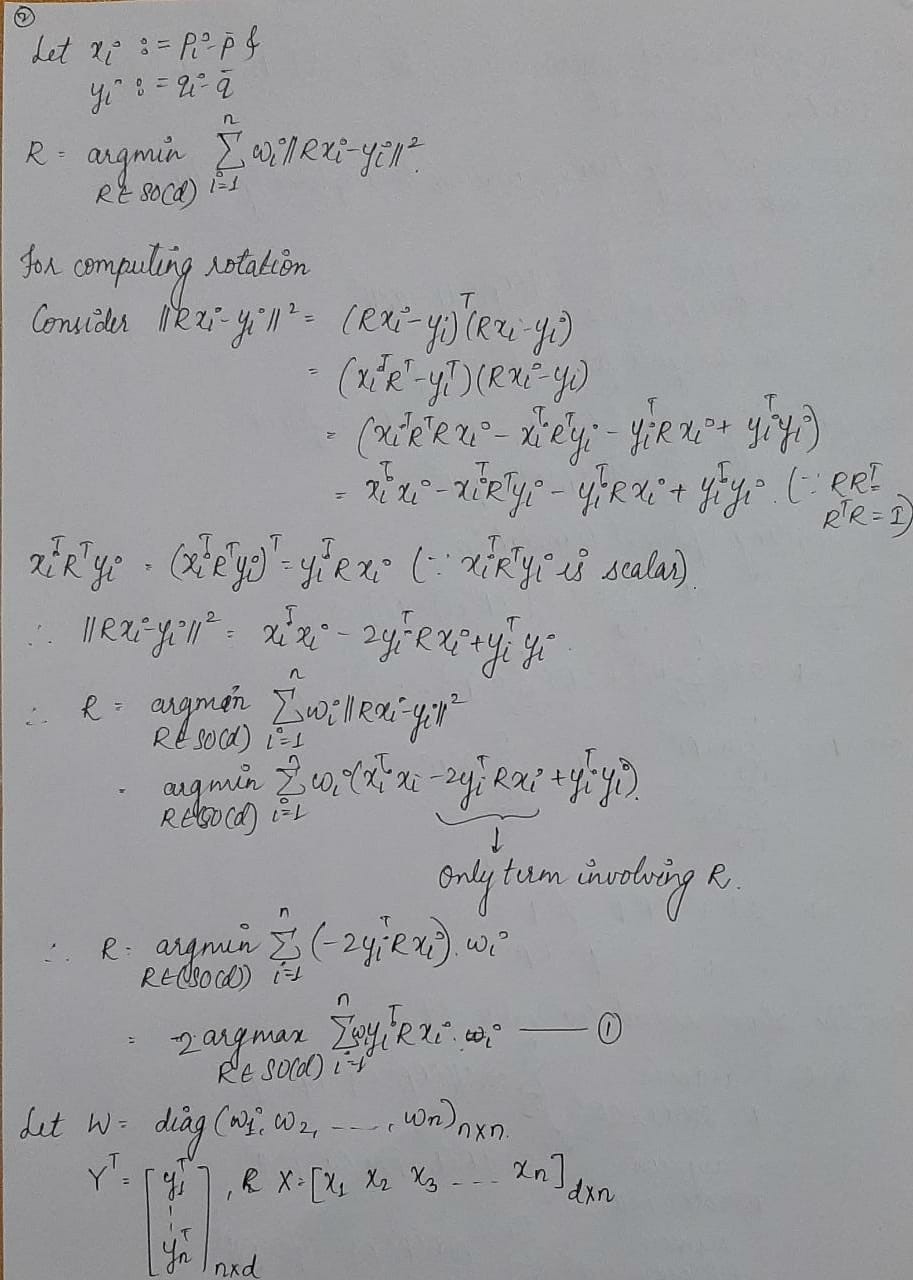 ②
Let xᵢ := pᵢ - p̄ &
yᵢ := qᵢ - q̄
R = argmin Σ wᵢ||Rxᵢ-yᵢ||².
R∈SO(d) i=1 n
for computing rotation
Consider ||Rxᵢ-yᵢ||² = (Rxᵢ-yᵢ)ᵀ(Rxᵢ-yᵢ)
= (xᵢᵀRᵀ-yᵢᵀ)(Rxᵢ-yᵢ)
= (xᵢᵀRᵀRxᵢ - xᵢᵀRᵀyᵢ - yᵢᵀRxᵢ + yᵢᵀyᵢ)
= xᵢᵀxᵢ - xᵢᵀRᵀyᵢ - yᵢᵀRxᵢ + yᵢᵀyᵢ. (∵ RRᵀ=
RᵀR = I)
xᵢᵀRᵀyᵢ = (xᵢᵀRᵀyᵢ)ᵀ = yᵢᵀRxᵢ (∵ xᵢᵀRᵀyᵢ is scalar)
∴ ||Rxᵢ-yᵢ||² = xᵢᵀxᵢ - 2yᵢᵀRxᵢ + yᵢᵀyᵢ.
∴ R = argmin Σ wᵢ||Rxᵢ-yᵢ||²
R∈SO(d) i=1 n
= argmin Σ wᵢ(xᵢᵀxᵢ - 2yᵢᵀRxᵢ + yᵢᵀyᵢ).
R∈SO(d) i=1 n
↓
Only term involving R.
∴ R = argmin Σ (-2yᵢᵀRxᵢ).wᵢ
R∈(SO(d)) i=1 n
= -2 argmax Σ wᵢyᵢᵀRxᵢ. —— ①
R∈SO(d) i=1 n
Let W = diag(w₁, w₂, ----, wn)n×n.
Yᵀ = [y₁ᵀ ⋮ ynᵀ]n×d, & X = [x₁ x₂ x₃ --- xn]d×n